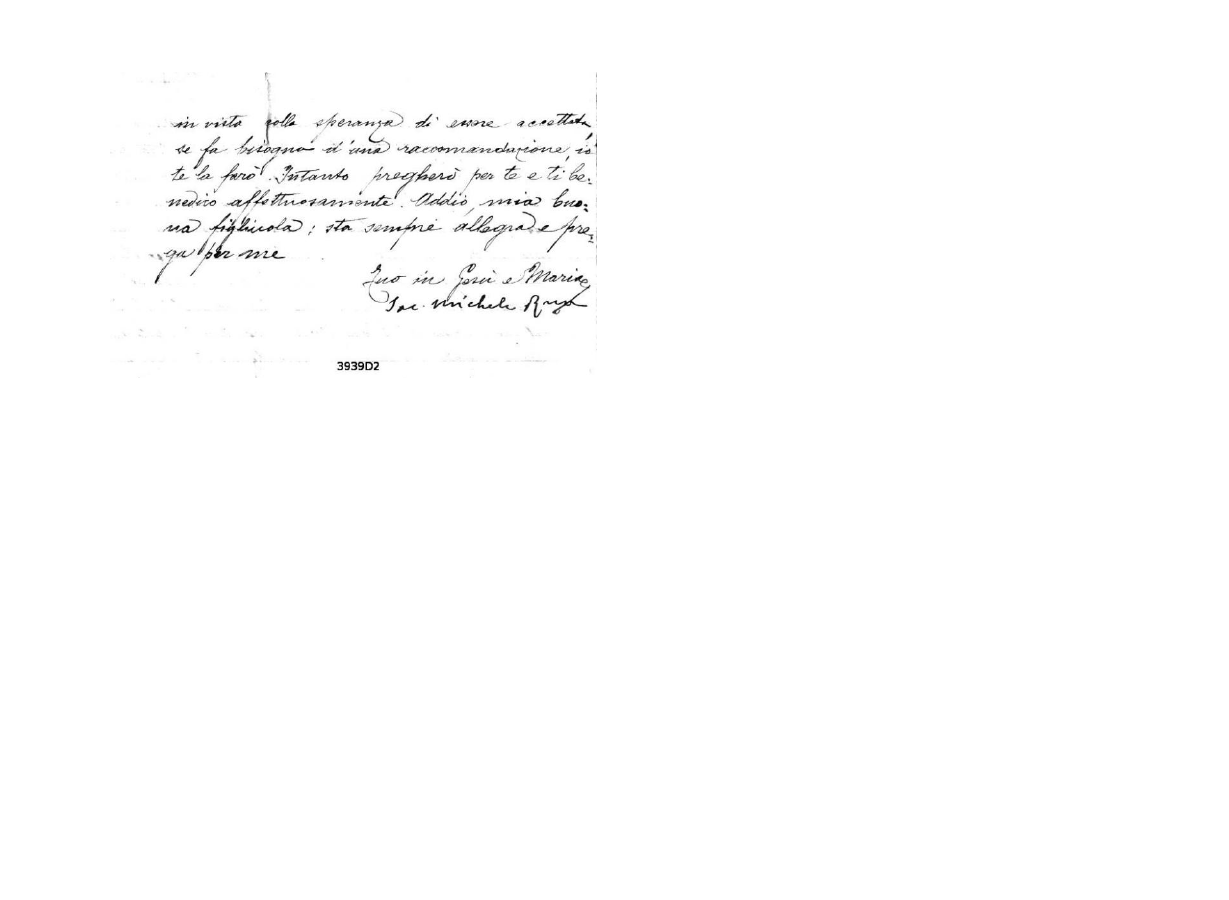 in vista colla speranza di essere accettata,
se fa bisogno d'una raccomandazione, io
te la farò. Intanto pregherò per te e ti be=
nedico affettuosamente. Addio, mia buo=
na figliuola; sta sempre allegra e pre=
ga per me
Tuo in Gesù e Maria
Sac. Michele Rua
3939D2